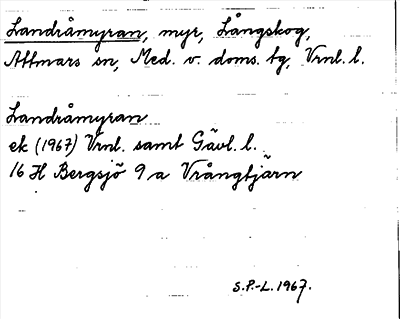 Landråmyran, myr, Långskog,
Attmars sn, Med. v. doms. tg, Vrnl. l.
Landråmyran
ek (1967) Vrnl. samt Gävl. l.
16 H Bergsjö 9 a Vrångtjärn
S.P.-L. 1967.